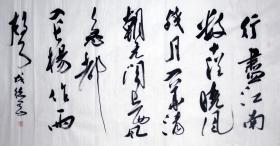 行盡江南
數十程曉風
殘月入華清
朝元閣上西風
急都
入長楊作雨
聲